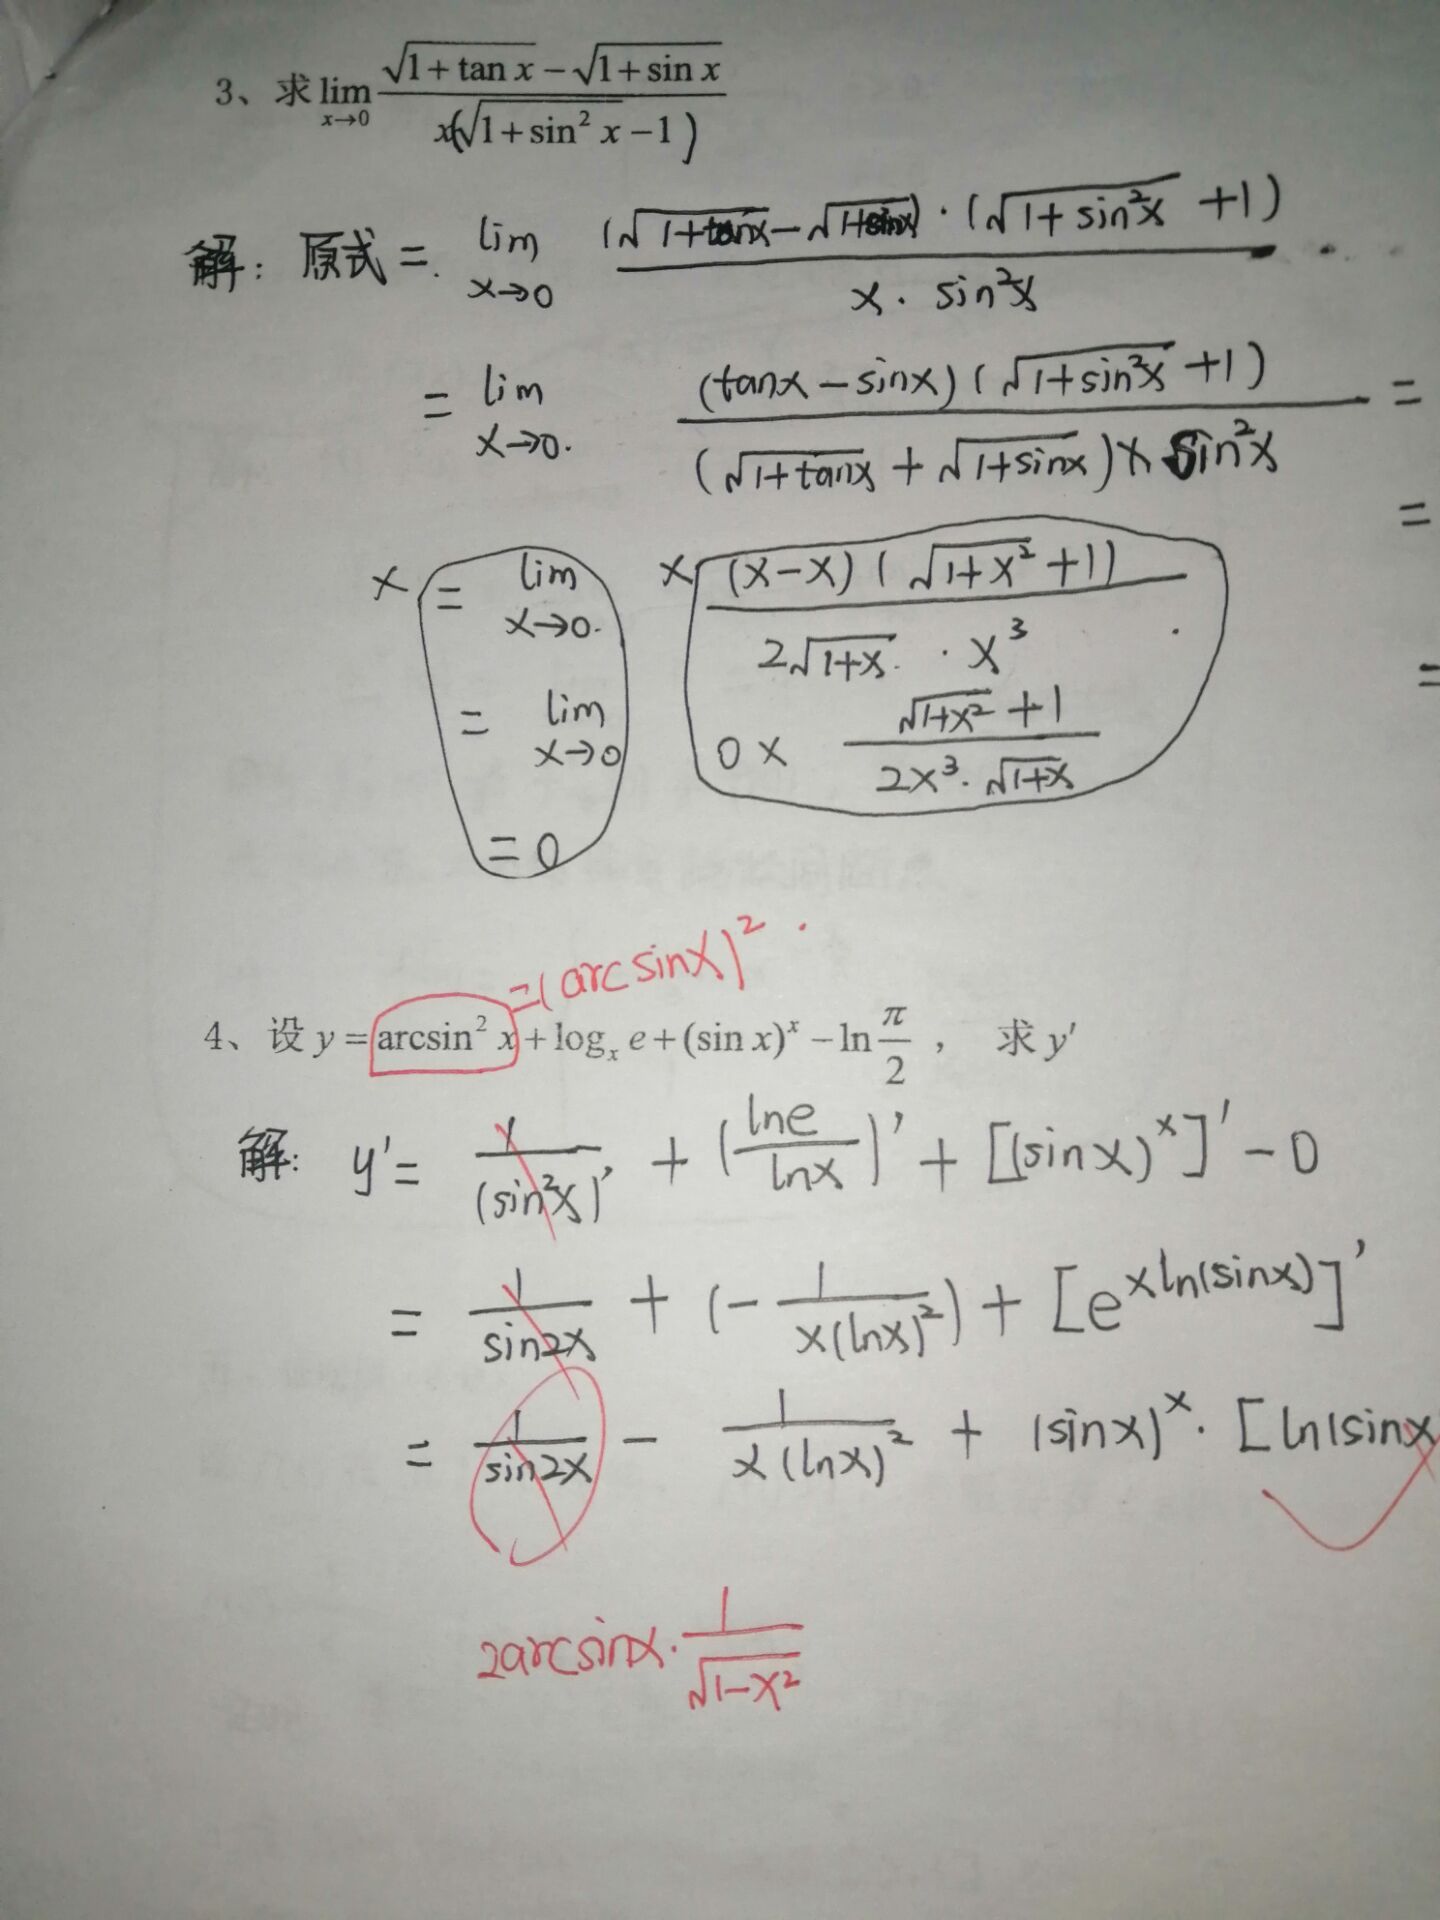 3、求 lim x→0 (√(1+tan x) − √(1+sin x)) / (x(√(1+sin² x) −1))
解: 原式 = lim x→0 (√(1+tanx) − √(1+sinx)) · (√(1+sin²x) +1) / (x · sin²x)
= lim x→0. (tanx − sinx) (√(1+sin²x) +1) / ((√(1+tanx) + √(1+sinx)) x sin²x) =
=
× = lim x→0. × (x−x) (√(1+x²) +1) / (2√(1+x) · x³)
=
= lim x→0 0 × (√(1+x²) +1) / (2x³ · √(1+x))
= 0
=(arcsinx)² .
4、设 y = arcsin² x + logₓ e + (sin x)ˣ − ln π/2 ， 求 y′
解: y′ = 1/(sin²x)′ + (lne/lnx)′ + [(sinx)ˣ]′ − 0
= 1/sin2x + (− 1/(x(lnx)²)) + [e^(xln(sinx))]′
= 1/sin2x − 1/(x(lnx)²) + (sinx)ˣ · [ln(sinx
2arcsinx · 1/√(1−x²)